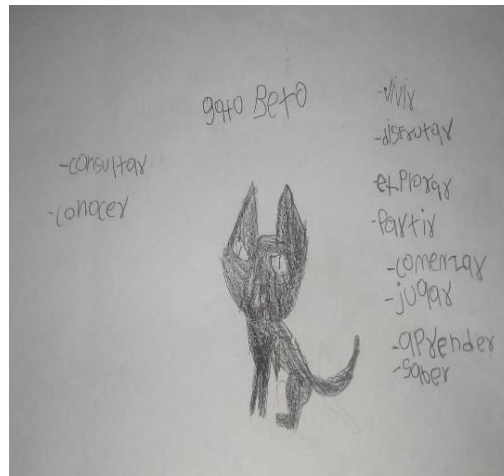 gato Beto
-consultar
-conocer
-vivir
-disfrutar
explorar
-partir
-comenzar
-jugar
-aprender
-saber